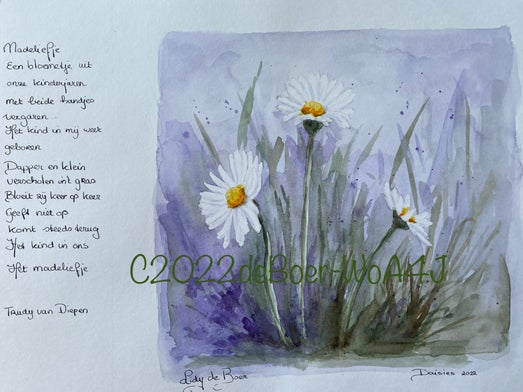 Madeliefje
Een bloemetje uit
onze kinderjaren
met beide handjes
vergaren..
Het kind in mij weer
geboren
Dapper en klein
verscholen int gras
Bloeit zij keer op keer
Geeft niet op
komt steeds terug
Het kind in ons
Het madeliefje
Trudy van Diepen
C2022deBoer-WoA4J
Lidy de Boer
Daisies 2022